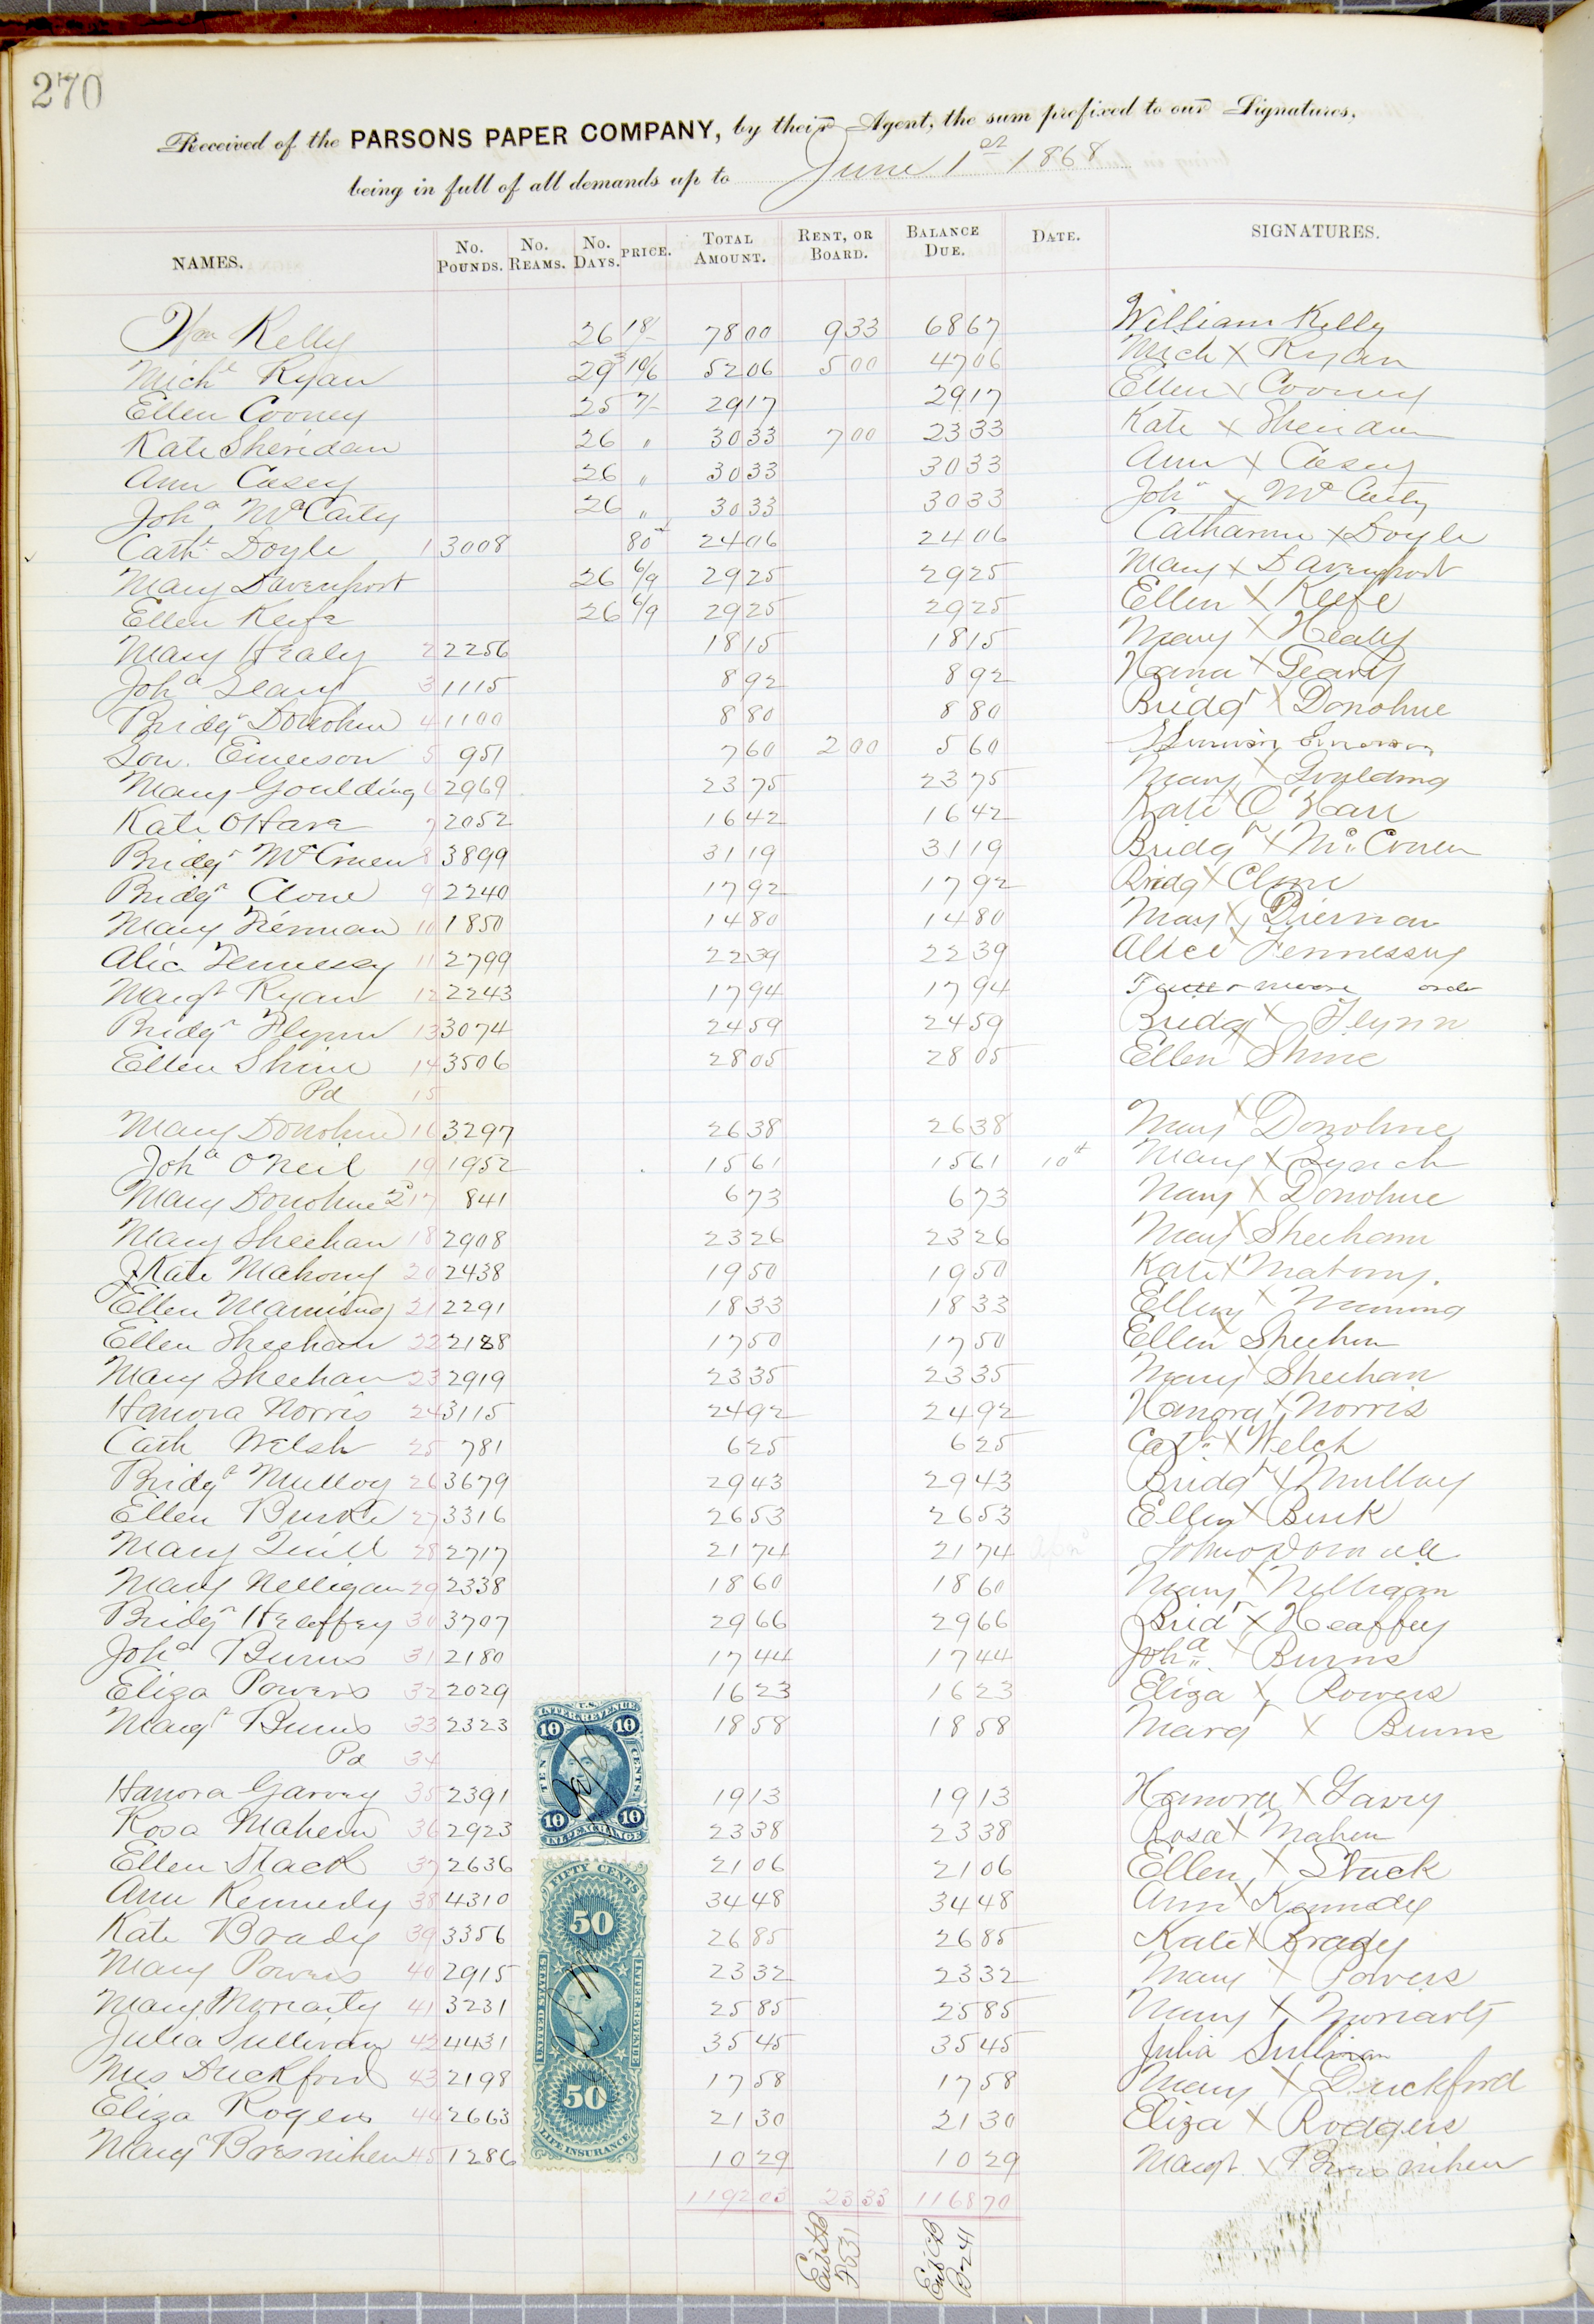 270
Received of the PARSONS PAPER COMPANY, by their Agent, the sum prefixed to our Signatures,
being in full of all demands up to June 1st 1868
NAMES. No. Pounds. No. Reams. No. Days. PRICE. Total Amount. Rent, or Board. Balance Due. Date. SIGNATURES.
Wm Kelly 26 18/- 78 00 9 33 68 67 William Kelly
Michl Ryan 29 10/6 52 06 5 00 47 06 Mich X Ryan
Ellen Cooney 25 7/- 29 17 29 17 Ellen X Cooney
Kate Sheridan 26 " 30 33 7 00 23 33 Kate X Sheridan
Ann Casey 26 " 30 33 30 33 Ann X Casey
Joha McCarty 26 " 30 33 30 33 Joha X McCarty
Cath Doyle 1 3008 80 24 06 24 06 Catharine X Doyle
Mary Davenport 26 6/9 29 25 29 25 Mary X Davenport
Ellen Keefe 26 6/9 29 25 29 25 Ellen X Keefe
Mary Healy 2 2256 18 15 18 15 Mary X Healy
Joha Geary 3 1115 8 92 8 92 Hana X Gearty
Bridgt Donohue 4 1100 8 80 8 80 Bridgt X Donohue
Lou. Emerson 5 951 7 60 2 00 5 60 Emerson
Mary Goulding 6 2969 23 75 23 75 Mary X Goulding
Kate O'Hara 7 2052 16 42 16 42 Kate O'Harr
Bridgt McCruen 8 3899 31 19 31 19 Bridgt X McCruen
Bridgt Clone 9 2240 17 92 17 92 Bridg X Clone
Mary Tiernan 10 1850 14 80 14 80 Mary X Tiernan
Alice Fennessy 11 2799 22 39 22 39 Alice X Fennessy
Margt Ryan 12 2243 17 94 17 94 Moore order
Bridgt Flynn 13 3074 24 59 24 59 Bridgt X Flynn
Ellen Shine 14 3506 28 05 28 05 Ellen X Shine
Pd 15
Mary Donohue 16 3297 26 38 26 38 Mary X Donohue
Joha O'Neil 19 1952 15 61 15 61 10th Mary X Lynch
Mary Donohue 2d 17 841 6 73 6 73 Mary X Donohue
Mary Sheehan 18 2908 23 26 23 26 Mary X Sheehan
Kate Mahony 20 2438 19 50 19 50 Kate X Mahony.
Ellen Manning 21 2291 18 33 18 33 Ellen X Manning
Ellen Sheehan 22 2188 17 50 17 50 Ellen X Sheehan
Mary Sheehan 23 2919 23 35 23 35 Mary X Sheehan
Hanora Norris 24 3115 24 92 24 92 Hanora X Norris
Cath Welsh 25 781 6 25 6 25 Cath X Welch
Bridgt Mulloy 26 3679 29 43 29 43 Bridgt X Mulloy
Ellen Burke 27 3316 26 53 26 53 Ellen X Burk
Mary Quill 28 2717 21 74 21 74 John O Donnell
Mary Nelligan 29 2338 18 60 18 60 Mary X Nelligan
Bridgt Heaffey 30 3707 29 66 29 66 Bridt X Heaffey
Joha Burns 31 2180 17 44 17 44 Joha X Burns
Eliza Powers 32 2029 16 23 16 23 Eliza X Powers
Margt Burns 33 2323 18 58 18 58 Margt X Burns
Pd 34
Hanora Garvey 35 2391 19 13 19 13 Hanora X Garvy
Rosa Mahern 36 2923 23 38 23 38 Rosa X Mahern
Ellen Stack 37 2636 21 06 21 06 Ellen X Stack
Ann Kennedy 38 4310 34 48 34 48 Ann X Kennedy
Kate Brady 39 3356 26 85 26 85 Kate X Brady
Mary Powers 40 2915 23 32 23 32 Mary X Powers
Mary Moriarty 41 3231 25 85 25 85 Mary X Moriarty
Julia Sullivan 42 4431 35 45 35 45 Julia Sullivan
Mrs Duckford 43 2198 17 58 17 58 Mary X Duckford
Eliza Rogers 44 2663 21 30 21 30 Eliza X Rodgers
Margt Bresnihen 45 1286 10 29 10 29 Margt X Bresnihen
1192 03 23 33 1168 70
U.S. INTER. REVENUE
10 10
TEN CENTS
10 10
INL. EXCHANGE
FIFTY CENTS
50
UNITED STATES INTER. REVENUE
50
LIFE INSURANCE